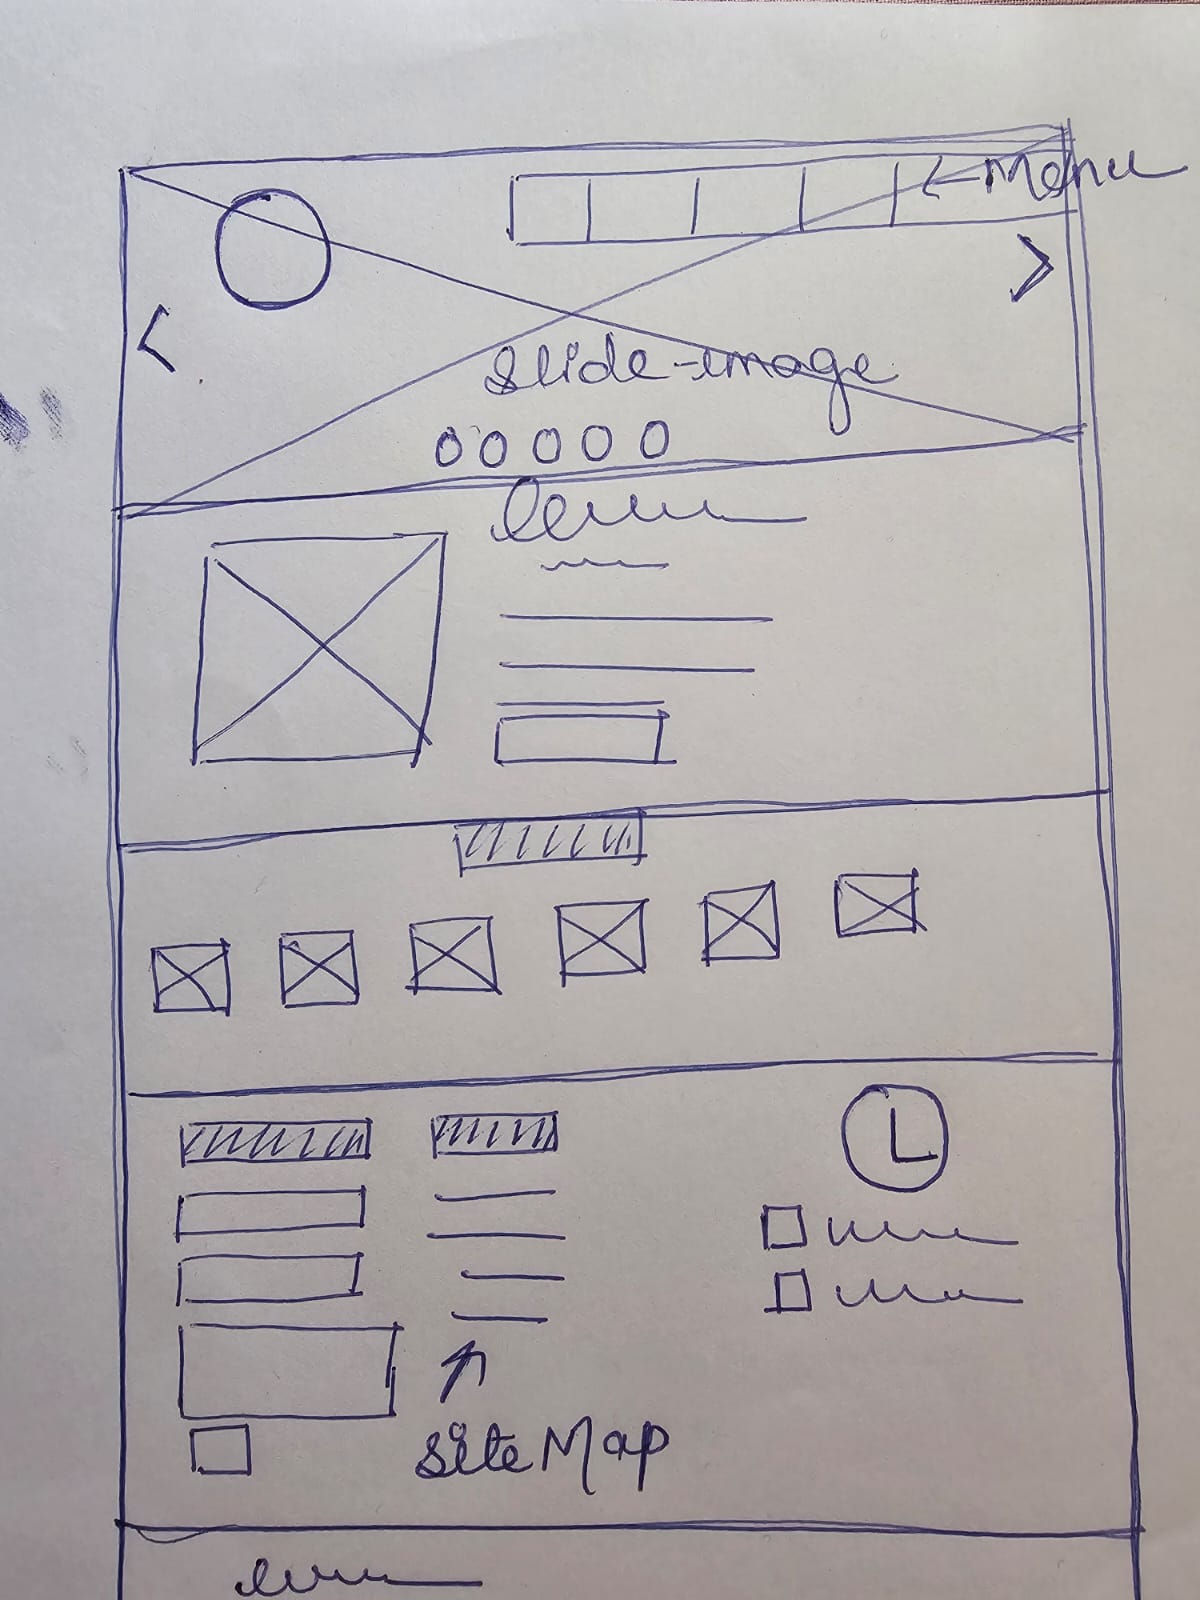 ← Menu
Slide-image
Site Map